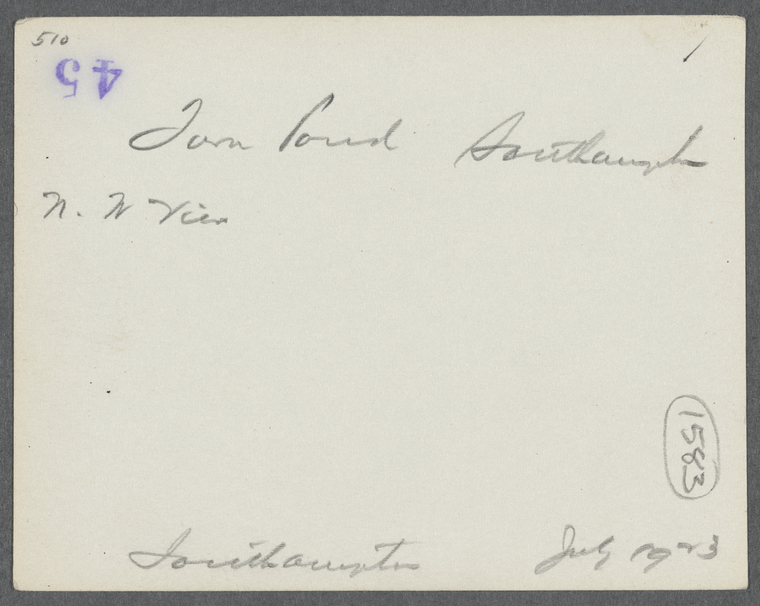 510
45
Town Pond Southampton
N. W View
1583
Southampton July 1923